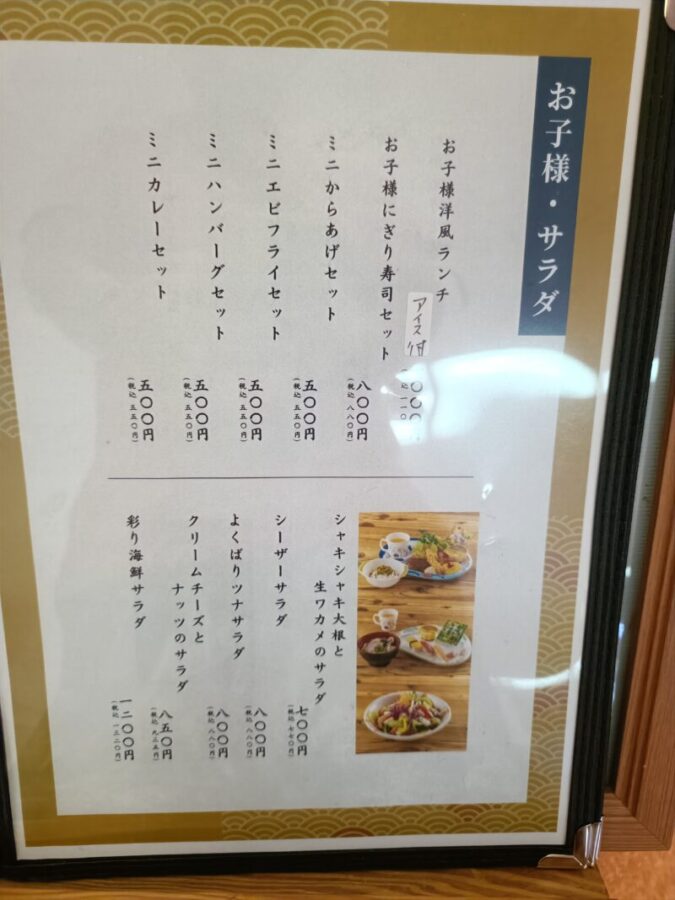 お子様・サラダ
お子様洋風ランチ
アイス付
〇〇〇円
お子様にぎり寿司セット
八〇〇円
(税込 八八〇円)
ミニからあげセット
五〇〇円
(税込 五五〇円)
ミニエビフライセット
五〇〇円
(税込 五五〇円)
ミニハンバーグセット
五〇〇円
(税込 五五〇円)
ミニカレーセット
五〇〇円
(税込 五五〇円)
シャキシャキ大根と
生ワカメのサラダ
七〇〇円
(税込 七七〇円)
シーザーサラダ
八〇〇円
(税込 八八〇円)
よくばりツナサラダ
八〇〇円
(税込 八八〇円)
クリームチーズと
ナッツのサラダ
八五〇円
(税込 九三五円)
彩り海鮮サラダ
一二〇〇円
(税込 一三二〇円)